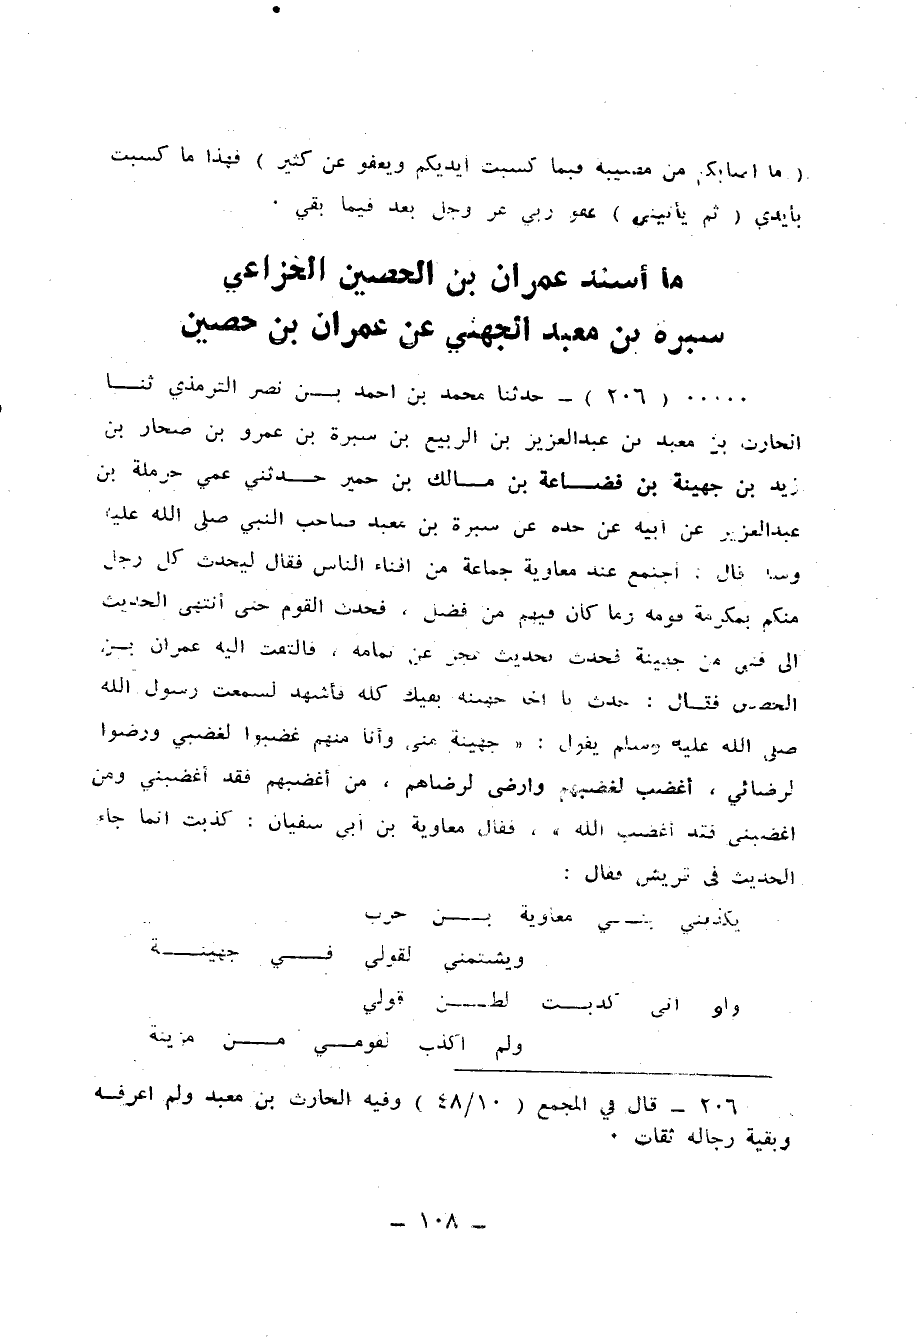 ( ما اصابكم من مصيبة فبما كسبت أيديكم ويعفو عن كثير ) فهذا ما كسبت
بأيدي ( ثم يأتيني ) عفو ربي عز وجل بعد فيما بقي ٠
ما أسند عمران بن الحصين الخزاعي
سبرة بن معبد الجهني عن عمران بن حصين
٠٠٠٠٠ ( ٢٠٦ ) ــ حدثنا محمد بن احمد بــن نصر الترمذي ثنــا
الحارث بن معبد بن عبدالعزيز بن الربيع بن سبرة بن عمرو بن صحار بن
زيد بن جهينة بن قضــاعة بن مــالك بن حمير حــدثني عمي حرملة بن
عبدالعزيز عن أبيه عن جده عن سبرة بن معبد صاحب النبي صلى الله عليه
وسلم قال : أجتمع عند معاوية جماعة من افناء الناس فقال ليحدث كل رجل
منكم بمكرمة قومه وما كان فيهم من فضل ، فحدث القوم حتى أنتهى الحديث
الى فتى من جهينة فحدث بحديث عجز عن تمامه ، فالتفت اليه عمران بــن
الحصين فقــال : حدث يا اخا جهينة بفيك كله فأشهد لسمعت رسول الله
صلى الله عليه وسلم يقول : « جهينة مني وأنا منهم غضبوا لغضبي ورضوا
لرضائي ، أغضب لغضبهم وارضى لرضاهم ، من أغضبهم فقد أغضبني ومن
اغضبني فقد أغضب الله » ، فقال معاوية بن أبي سفيان : كذبت انما جاء
الحديث في قريش فقال :
يكذبني معاوية بــــن حرب
ويشتمني لقولي فــــي جهينــــة
ولو اني كذبــت لطــــن قولي
ولم اكذب لقومــــي مــــن مزينة
٢٠٦ ــ قال في المجمع ( ٤٨/١٠ ) وفيه الحارث بن معبد ولم اعرفــه
وبقية رجاله ثقات ٠
ــ ١٠٨ ــ